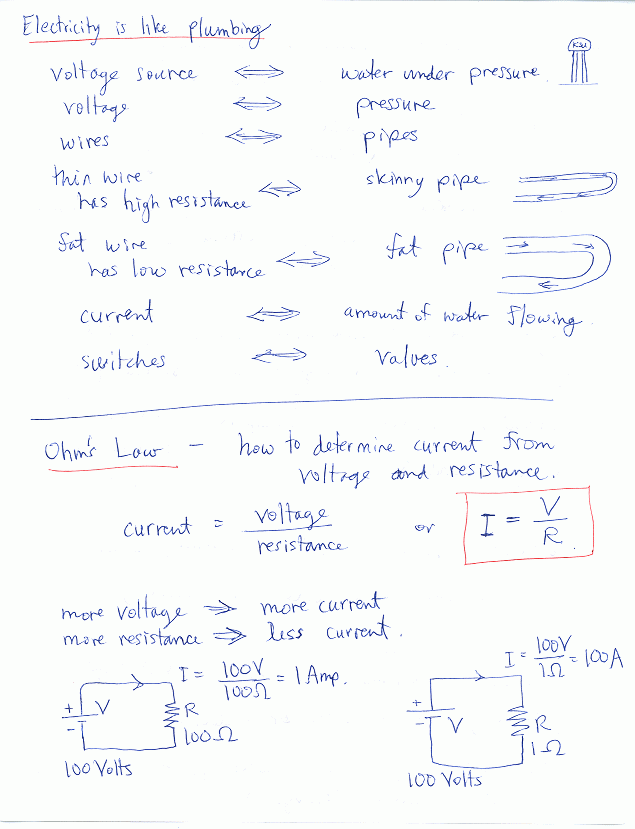 Electricity is like plumbing
voltage source ⟺ water under pressure. KSU
voltage ⟺ pressure
wires ⟺ pipes
thin wire
has high resistance ⟺ skinny pipe
fat wire
has low resistance ⟺ fat pipe
current ⟺ amount of water flowing.
switches ⟺ valves.
Ohm's Law – how to determine current from
voltage and resistance.
current = voltage / resistance or I = V / R
more voltage ⇒ more current
more resistance ⇒ less current.
I = 100V / 100Ω = 1 Amp.
+ - V
R
100Ω
100 Volts
I = 100V / 1Ω = 100A
+ - V
R
1Ω
100 Volts